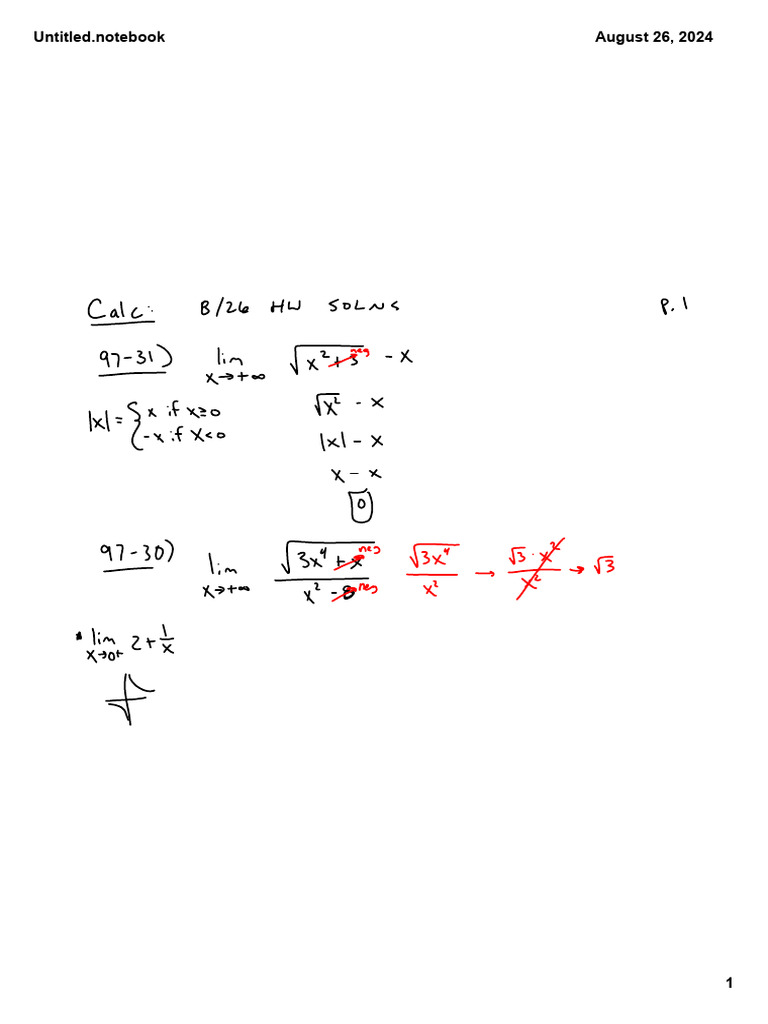 Untitled.notebook August 26, 2024
Calc: 8/26 HW SOLNS P. 1
97-31) lim x→+∞ √(x² + 3) neg - x
|x| = { x if x≥0 √x² - x
-x if x<0 |x| - x
x - x
0
97-30) lim x→+∞ √(3x⁴ + x) neg / x² - 8 neg √3x⁴ / x² → √3 · x² / x² → √3
* lim x→0+ 2 + 1/x
1